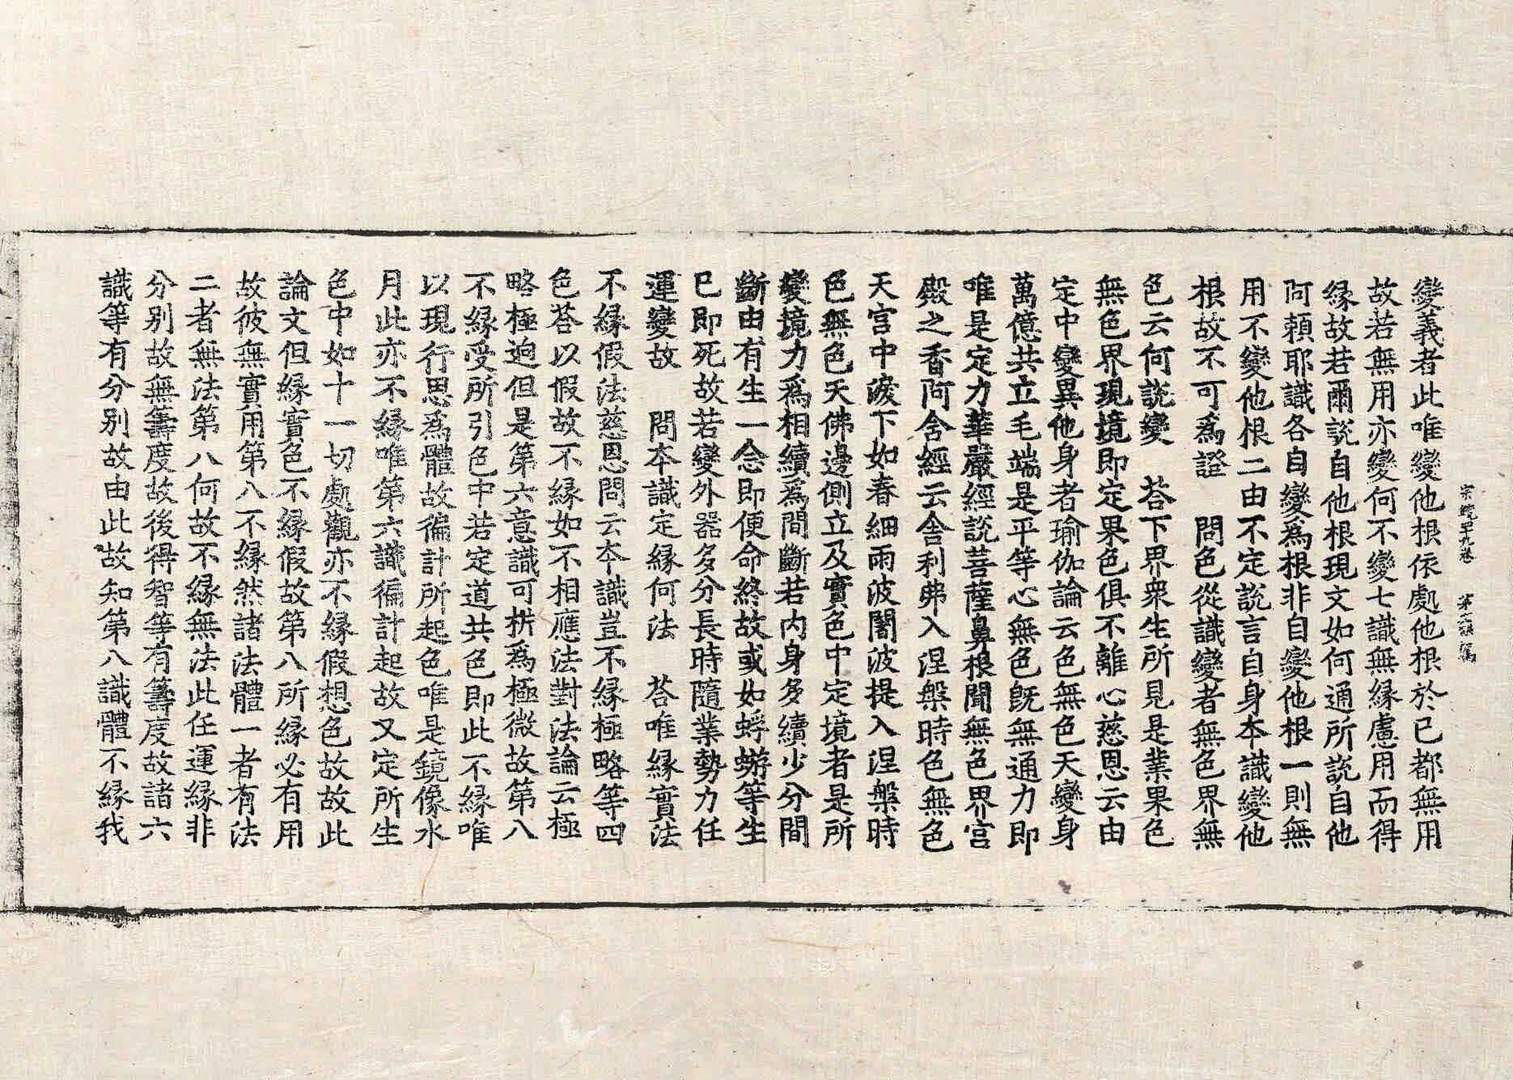 宗鏡 卷 第 張
變義者此唯變他根依處他根於已都無用
故若無用亦變何不變七識無緣慮用而得
緣故若爾說自他根現文如何通所說自他
阿賴耶識各自變爲根非自變他根一則無
用不變他根二由不定說言自身本識變他
根故不可爲證 問色從識變者無色界無
色云何說變 荅下界衆生所見是業果色
無色界現境即定果色俱不離心慈恩云由
定中變異他身者瑜伽論云色無色天變身
萬億共立毛端是平等心無色旣無通力即
唯是定力華嚴經說菩薩鼻根聞無色界宮
殿之香阿含經云舍利弗入涅槃時色無色
天宮中淚下如春細雨波闍波提入涅槃時
色無色天佛邊側立及實色中定境者是所
變境力爲相續爲間斷若内身多續少分間
斷由有生一念即便命終故或如蜉蝣等生
已即死故若變外器多分長時隨業勢力任
運變故 問本識定緣何法 荅唯緣實法
不緣假法慈恩問云本識豈不緣極略等四
色荅以假故不緣如不相應法對法論云極
略極逈但是第六意識可析爲極微故第八
不緣受所引色中若定道共色即此不緣唯
以現行思爲體故徧計所起色唯是鏡像水
月此亦不緣唯第六識徧計起故又定所生
色中如十一切處觀亦不緣假想色故故此
論文但緣實色不緣假故第八所緣必有用
故彼無實用第八不緣然諸法體一者有法
二者無法第八何故不緣無法此任運緣非
分別故無籌度故後得智等有籌度故諸六
識等有分別故由此故知第八識體不緣我